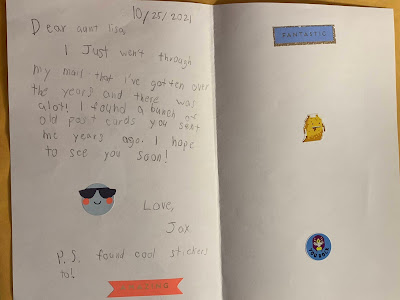 10/25/2021
Dear aunt lisa,
I Just went through
my mail that I've gotten over
the years and there was
alot! I found a bunch of
old post cards you sent
me years ago. I hope
to see you soon!
Love,
Jax
P.S. found cool stickers
to!
AMAZING
FANTASTIC